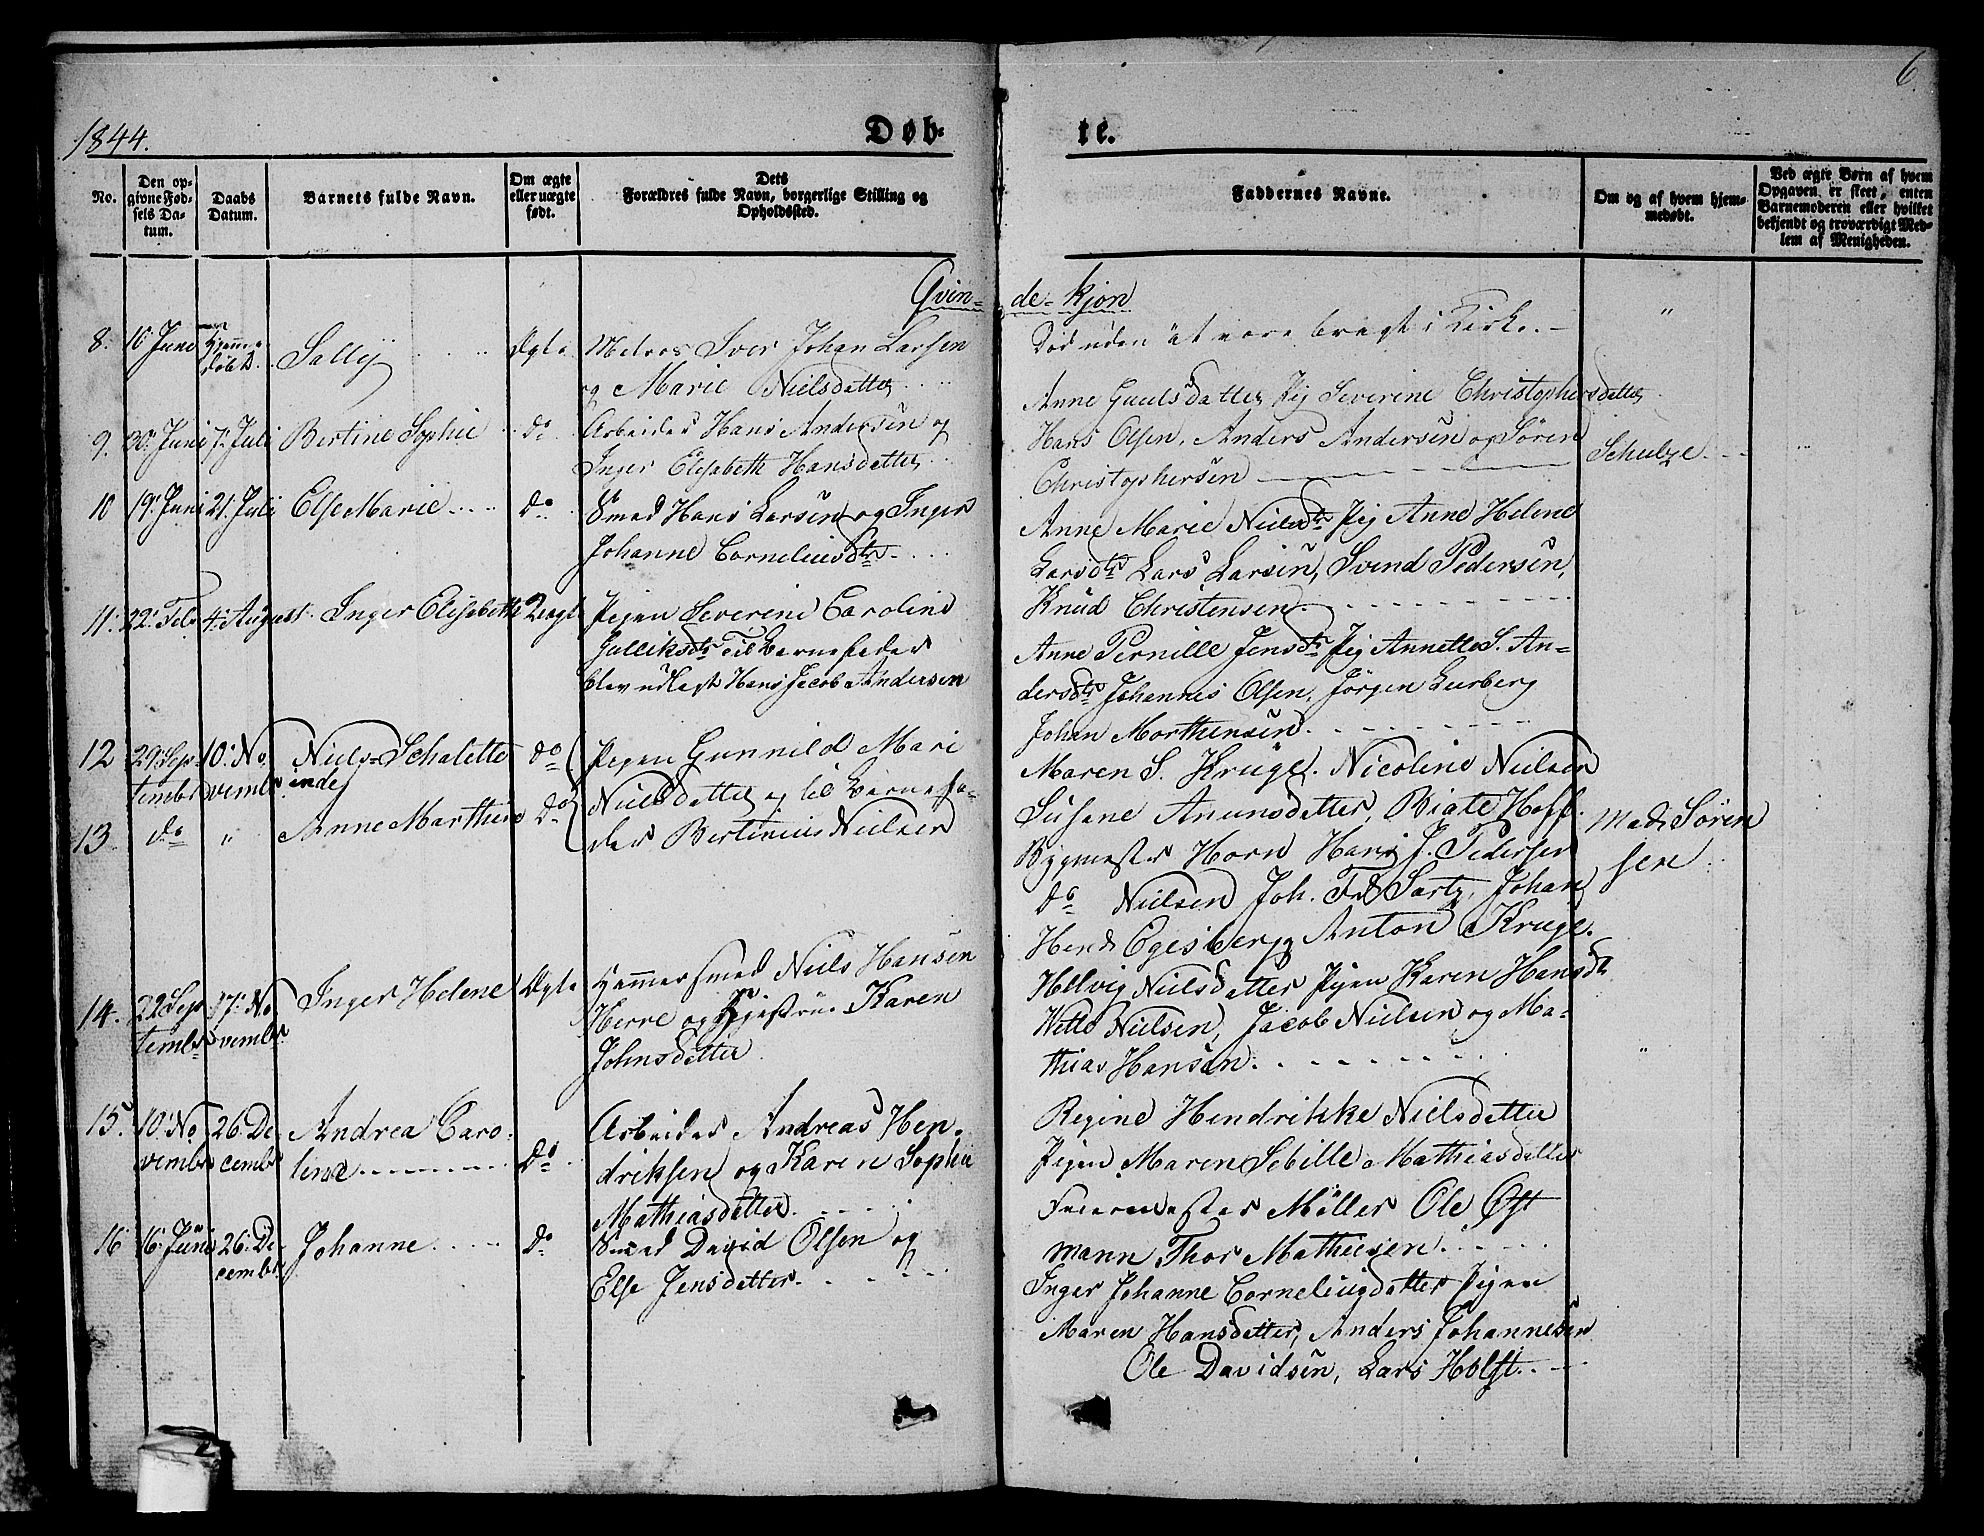 6.
1844.
Døb-
te.
No.
Den op-
givne Fød-
sels Da-
tum.
Daabs
Datum.
Barnets fulde Navn.
Om ægte
eller uægte
født.
Dets
Forældres fulde Navn, borgerlige Stilling og
Opholdssted.
Faddernes Navne.
Om og af hvem hjem-
medøbt.
Ved ægte Børn af hvem
Opgaven er skeet, enten
Barnemoderen eller hvilket
bekjendt og troværdigt Med-
lem af Menigheden.
Qvin-
de-kjøn
8. 10 Juni Hjemme
døbt. Sally Ægte
Iver Johan Larsen
og Marie Nielsdatter
Død uden at være bragt i Kirke.
9. 30: Juni 7: Juli Bertine Sophie do
Arbeider Hans Andersen og
Inger Elisabeth Hansdatter
Anne Gulsdatter Pig Severine Christophersdatter
Hans Olsen, Anders Andersen og Søren
Christophersen
Schulze
10 19: Juni 21: Juli Else Marie do
Smed Hans Larsen og Inger
Johanne Corneliusdtr
Anne Marie Nielsdtr Pig Anne Helene
Larsdtr Lars Larsen, Svend Pedersen,
Knud Christensen
11. 22: Feb 4: August Inger Elisabeth Uægt
Pigen Severine Caroline
Gulliksdtr Til Barnefader
blev udlagt Hans Jacob Andersen
Anne Pernille Jensdtr Pig Annette S. An-
dersdtr Johannes Olsen, Jørgen Lurberg
Johan Morthensen
12 29: Sep
tembr 10: No
vembr Niels-Schalette
inde do
Pigen Gunnild Mari
Nielsdatter og til Barnefa-
der Bertinius Nielsen
13 do " Anne Marthine do
Maren S. Krüge. Nicoline Nielsen
Susane Amunsdatter, Biate Hoff.
Bygmester Horn Hans J. Pedersen
do Nielsen Joh. Fr. Sartz, Johan
Hend Egesberg Anton Krüge.
Mads Søren
sen
14. 22 Sep
tembr 17: No
vembr Inger Helene Ægte
Hammersmed Niels Hansen
Herre og Hustrue Karen
Johnsdatter
Hellvig Nielsdatter Pigen Karen Hansdtr
Nielsen, Jacob Nielsen og Ma-
thias Hansen
15. 10: No
vembr 26: De
cembr Andrea Caro-
line do
Arbeider Andreas Hen-
driksen og Karen Sophie
Mathiasdatter
Regine Hendrikke Nielsdatter
Pigen Maren Sebille Mathiasdatter
Møller Ole Øst
mann Thor Mathiesen
16 16: Juni 26: De-
cembr Johanne do
Smed David Olsen og
Else Jensdatter
Inger Johanne Corneliusdatter Pigen
Maren Hansdatter, Anders Johannesen
Ole Davidsen, Lars Holst.